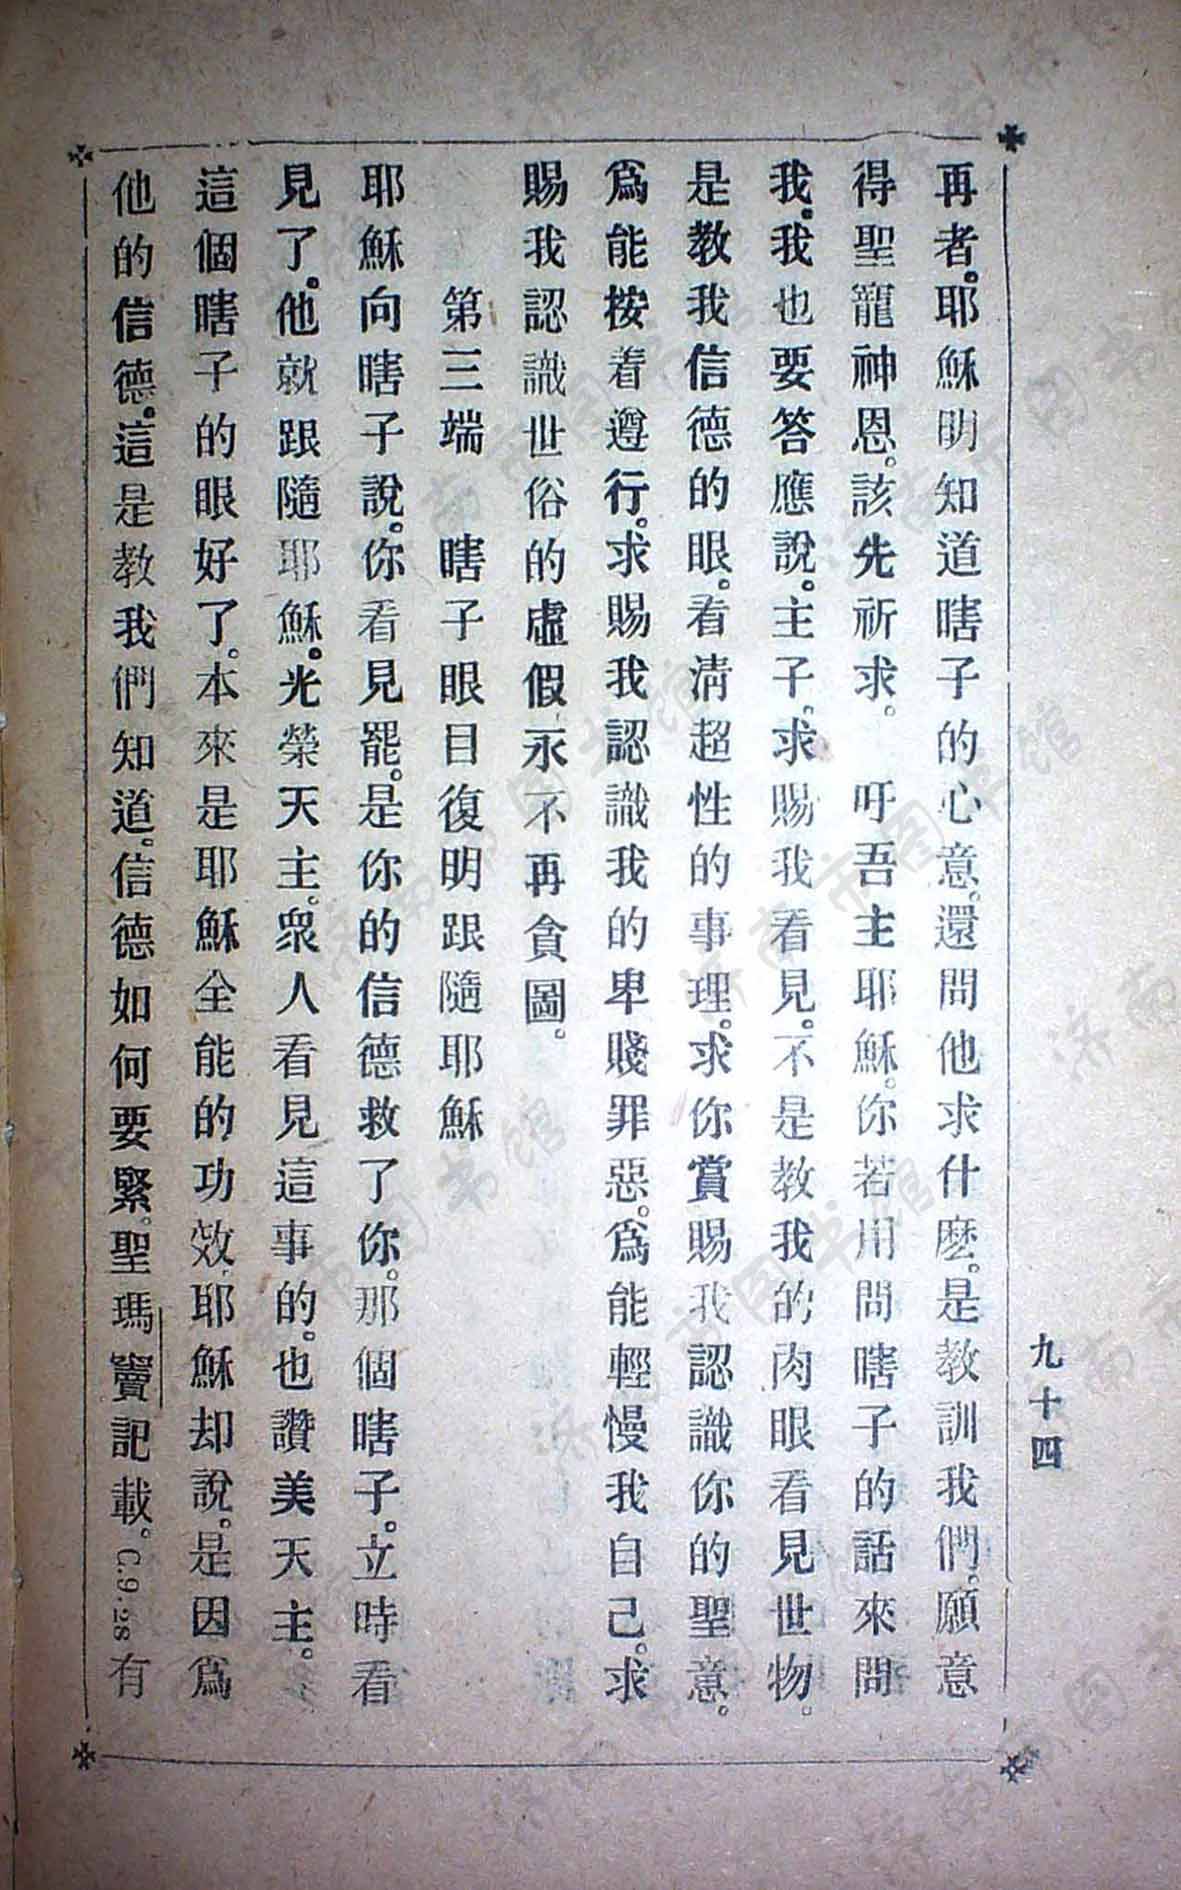 九十四
再者。耶穌明知道瞎子的心意。還問他求什麽。是教訓我們。願意
得聖寵神恩。該先祈求。　吁吾主耶穌。你若用問瞎子的話來問
我。我也要答應說。主子。求賜我看見。不是教我的肉眼看見世物。
是教我信德的眼。看清超性的事理。求你賞賜我認識你的聖意。
爲能按着遵行。求賜我認識我的卑賤罪惡。爲能輕慢我自己。求
賜我認識世俗的虛假永不再貪圖。
第三端　瞎子眼目復明跟隨耶穌
耶穌向瞎子說。你看見罷。是你的信德救了你。那個瞎子。立時看
見了。他就跟隨耶穌。光榮天主。衆人看見這事的。也讚美天主。
這個瞎子的眼好了。本來是耶穌全能的功效、耶穌却說。是因爲
他的信德。這是教我們知道。信德如何要緊。聖瑪竇記載。C.9.28有
济南市图书馆